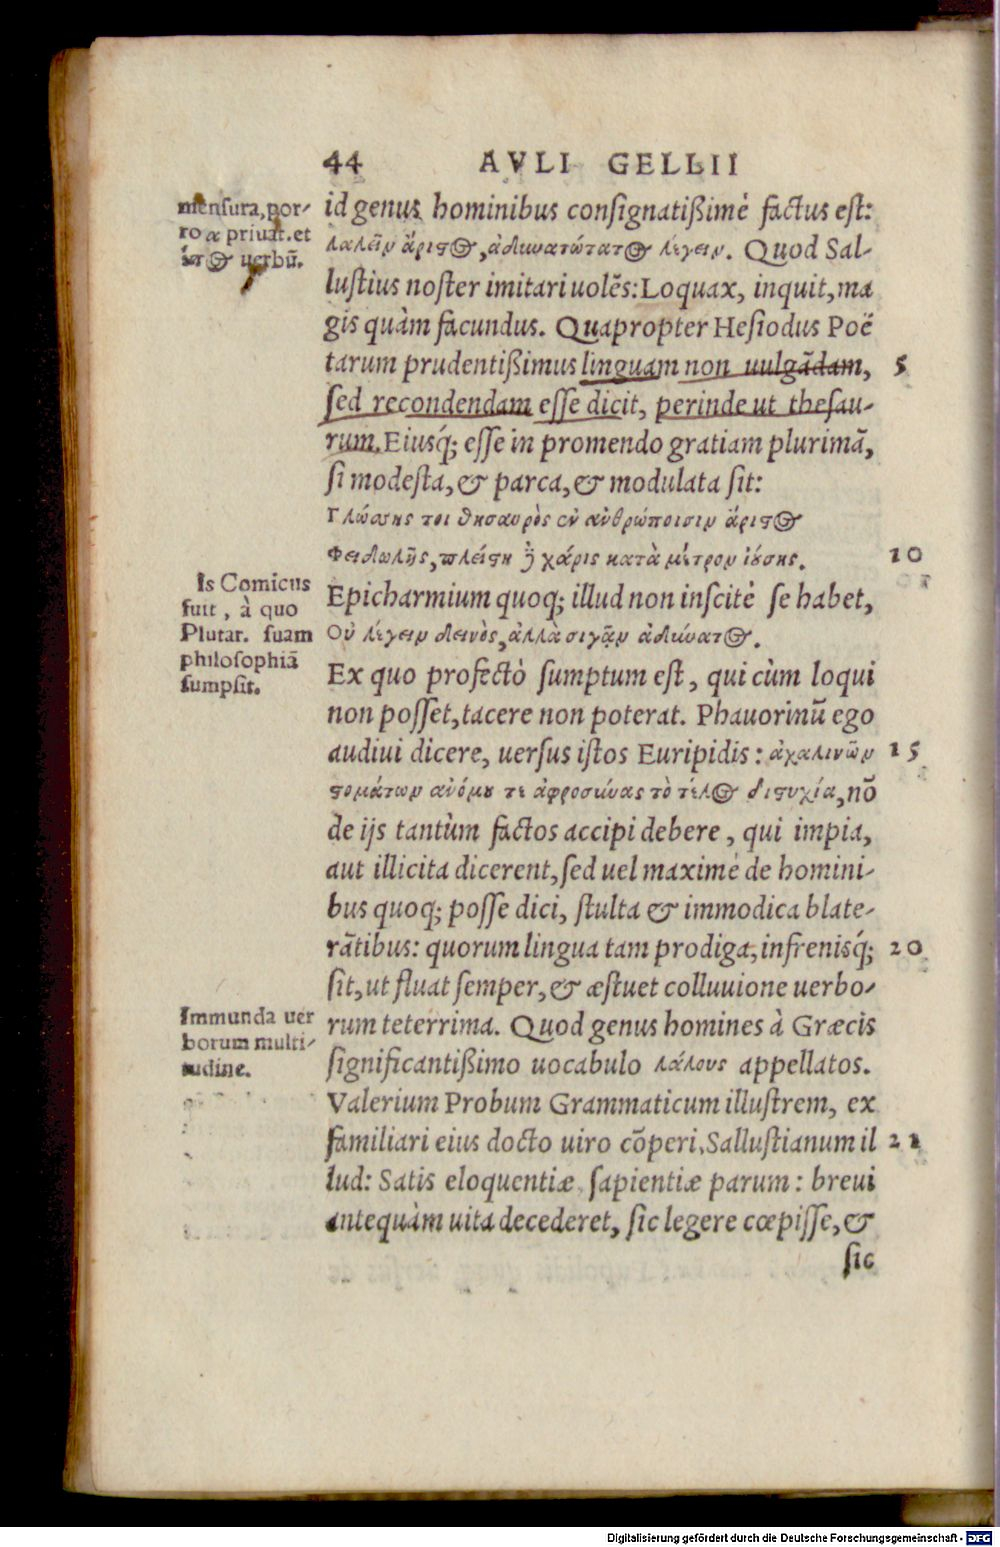 44 AVLI GELLII
mensura, por-
ro α priuat. et
ἔπ⊙ uerbũ.
id genus hominibus consignatißimè factus est:
λαλεῖν ἄριστος, ἀδυνατώτατος λέγειν. Quod Sal-
lustius noster imitari uolẽs: Loquax, inquit, ma
gis quàm facundus. Quapropter Hesiodus Poë
tarum prudentißimus linguam non uulgãdam, 5
sed recondendam esse dicit, perinde ut thesau-
rum. Eiusq́; esse in promendo gratiam plurimã,
si modesta, & parca, & modulata sit:
Γλώσσης τοι θησαυρὸς ἐν ἀνθρώποισιν ἄριστος
Φειδωλῆς, πλείστη δὲ χάρις κατὰ μέτρον ἰούσης. 10
Is Comicus
fuit, à quo
Plutar. suam
philosophiã
sumpsit.
Epicharmium quoq; illud non inscitè se habet,
Οὐ λέγειν δεινὸς, ἀλλα σιγᾷν ἀδύνατος.
Ex quo profectò sumptum est, qui cùm loqui
non posset, tacere non poterat. Phauorinũ ego
audiui dicere, uersus istos Euripidis: ἀχαλινῶν 15
στομάτων ἀνόμου τε ἀφροσύνας τὸ τέλος δυστυχία, nõ
de ijs tantùm factos accipi debere, qui impia,
aut illicita dicerent, sed uel maximè de homini-
bus quoq; posse dici, stulta & immodica blate-
rãtibus: quorum lingua tam prodiga, infrenisq́; 20
sit, ut fluat semper, & æstuet colluuione uerbo-
Immunda uer
borum multi-
tudine.
rum teterrima. Quod genus homines à Græcis
significantißimo uocabulo λάλους appellatos.
Valerium Probum Grammaticum illustrem, ex
familiari eius docto uiro cõperi, Sallustianum il 21
lud: Satis eloquentiæ sapientiæ parum: breui
antequàm uita decederet, sic legere cœpisse, &
sic
Digitalisierung gefördert durch die Deutsche Forschungsgemeinschaft - DFG